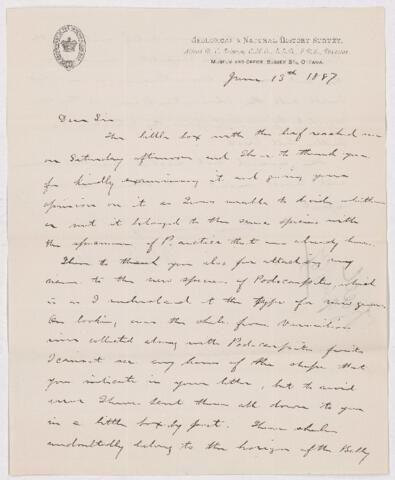 GEOLOGICAL & NATURAL HISTORY SURVEY.
Alfred R. C. Selwyn, C.M.G., L.L.D., F.R.S., Director.
MUSEUM AND OFFICE, SUSSEX STR., OTTAWA.
June 13th 1887
Dear Sir
The little box with the leaf reached me
on Saturday afternoon and I have to thank you
for kindly examining it and giving your
opinion on it as I was unable to decide whether
or not it belonged to the same species with
the specimen of P. arctica that was already here.
I have to thank you also for attaching my
name to the new species of Podocarpites, which
is as I understand it the type for new genus.
On looking over the shale from Vermilion
river collected along with Podocarpites fruits
I cannot see any leaves of the shape that
you indicate in your letter, but to avoid
error I have sent them all down to you
in a little box by post. These shales
undoubtedly belong to the horizon of the Belly